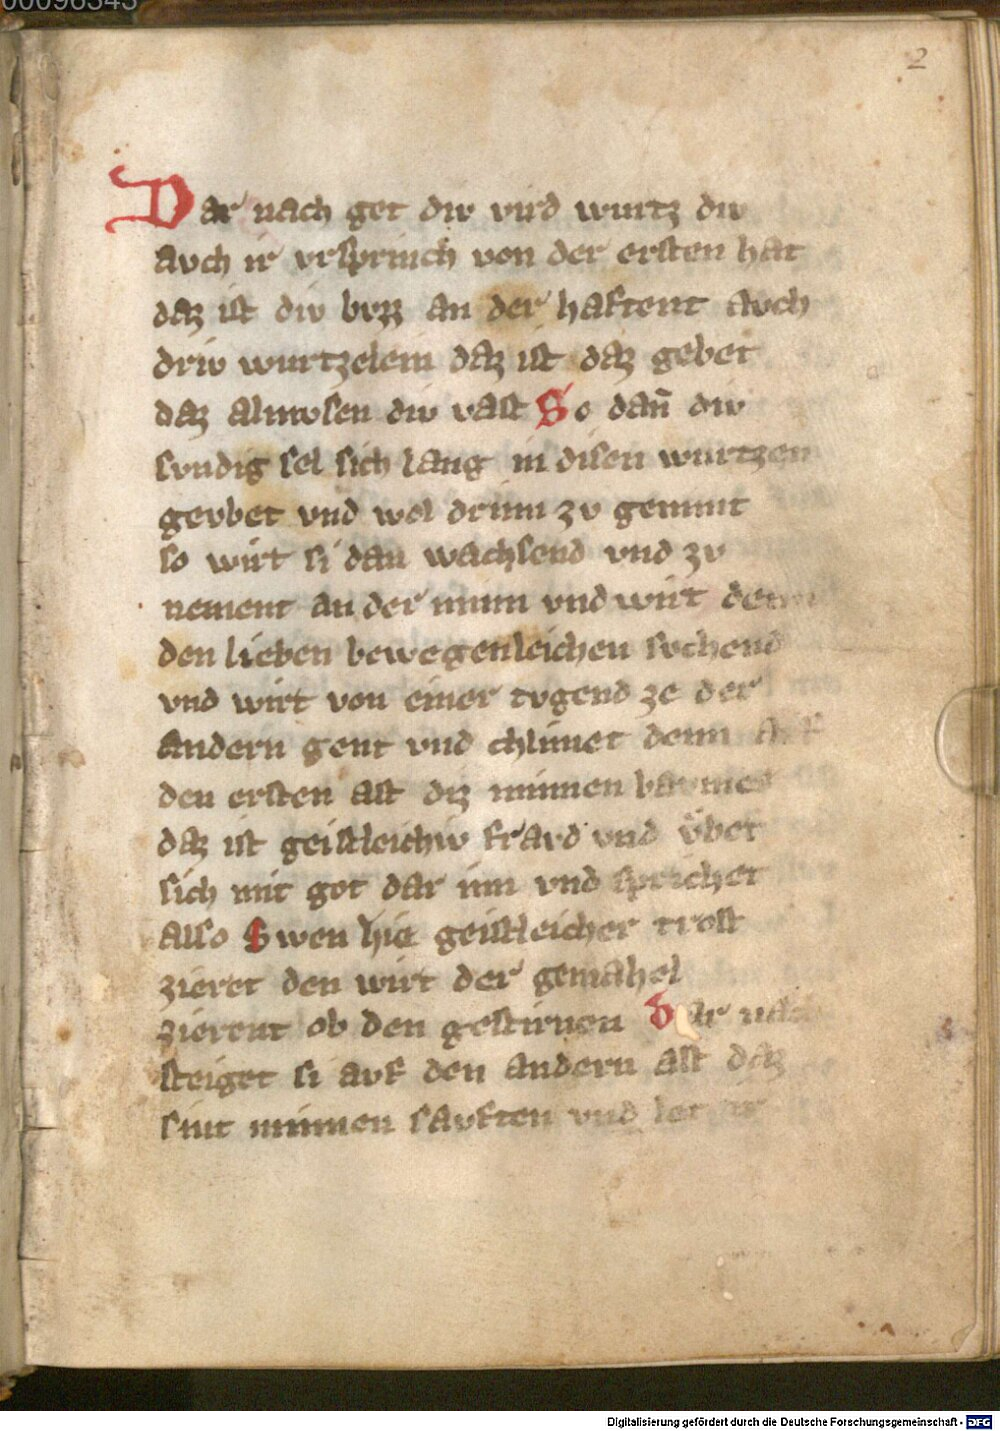 00096343
2
Dar nach get div vird wurtz div
avch ir vrsprinch von der ersten hat
daz ist div bvzz an der haftent avch
driv wurtzelein daz ist daz gebet
daz almvsen div vast So dan̄ div
svndig sel sich lang in disen wurtzen
gevbet vnd wol drinn zv genimt
so wirt si dan wachsend vnd zv
nement an der minn vnd wirt den
den lieben bewegenleichen svchend
vnd wirt von einer tvgend ze der
andern gent vnd chlimet denn avf
den ersten ast diz minnen bavmes
daz ist geistleichiv fravd vnd vͤbet
sich mit got dar inn vnd sprichet
also Swen hie geistleicher trost
zieret den wirt der gemahel
zierent ob den gestirnen Dar nach
steiget si avf den andern ast daz
sint minnen savften vnd
Digitalisierung gefördert durch die Deutsche Forschungsgemeinschaft - DFG